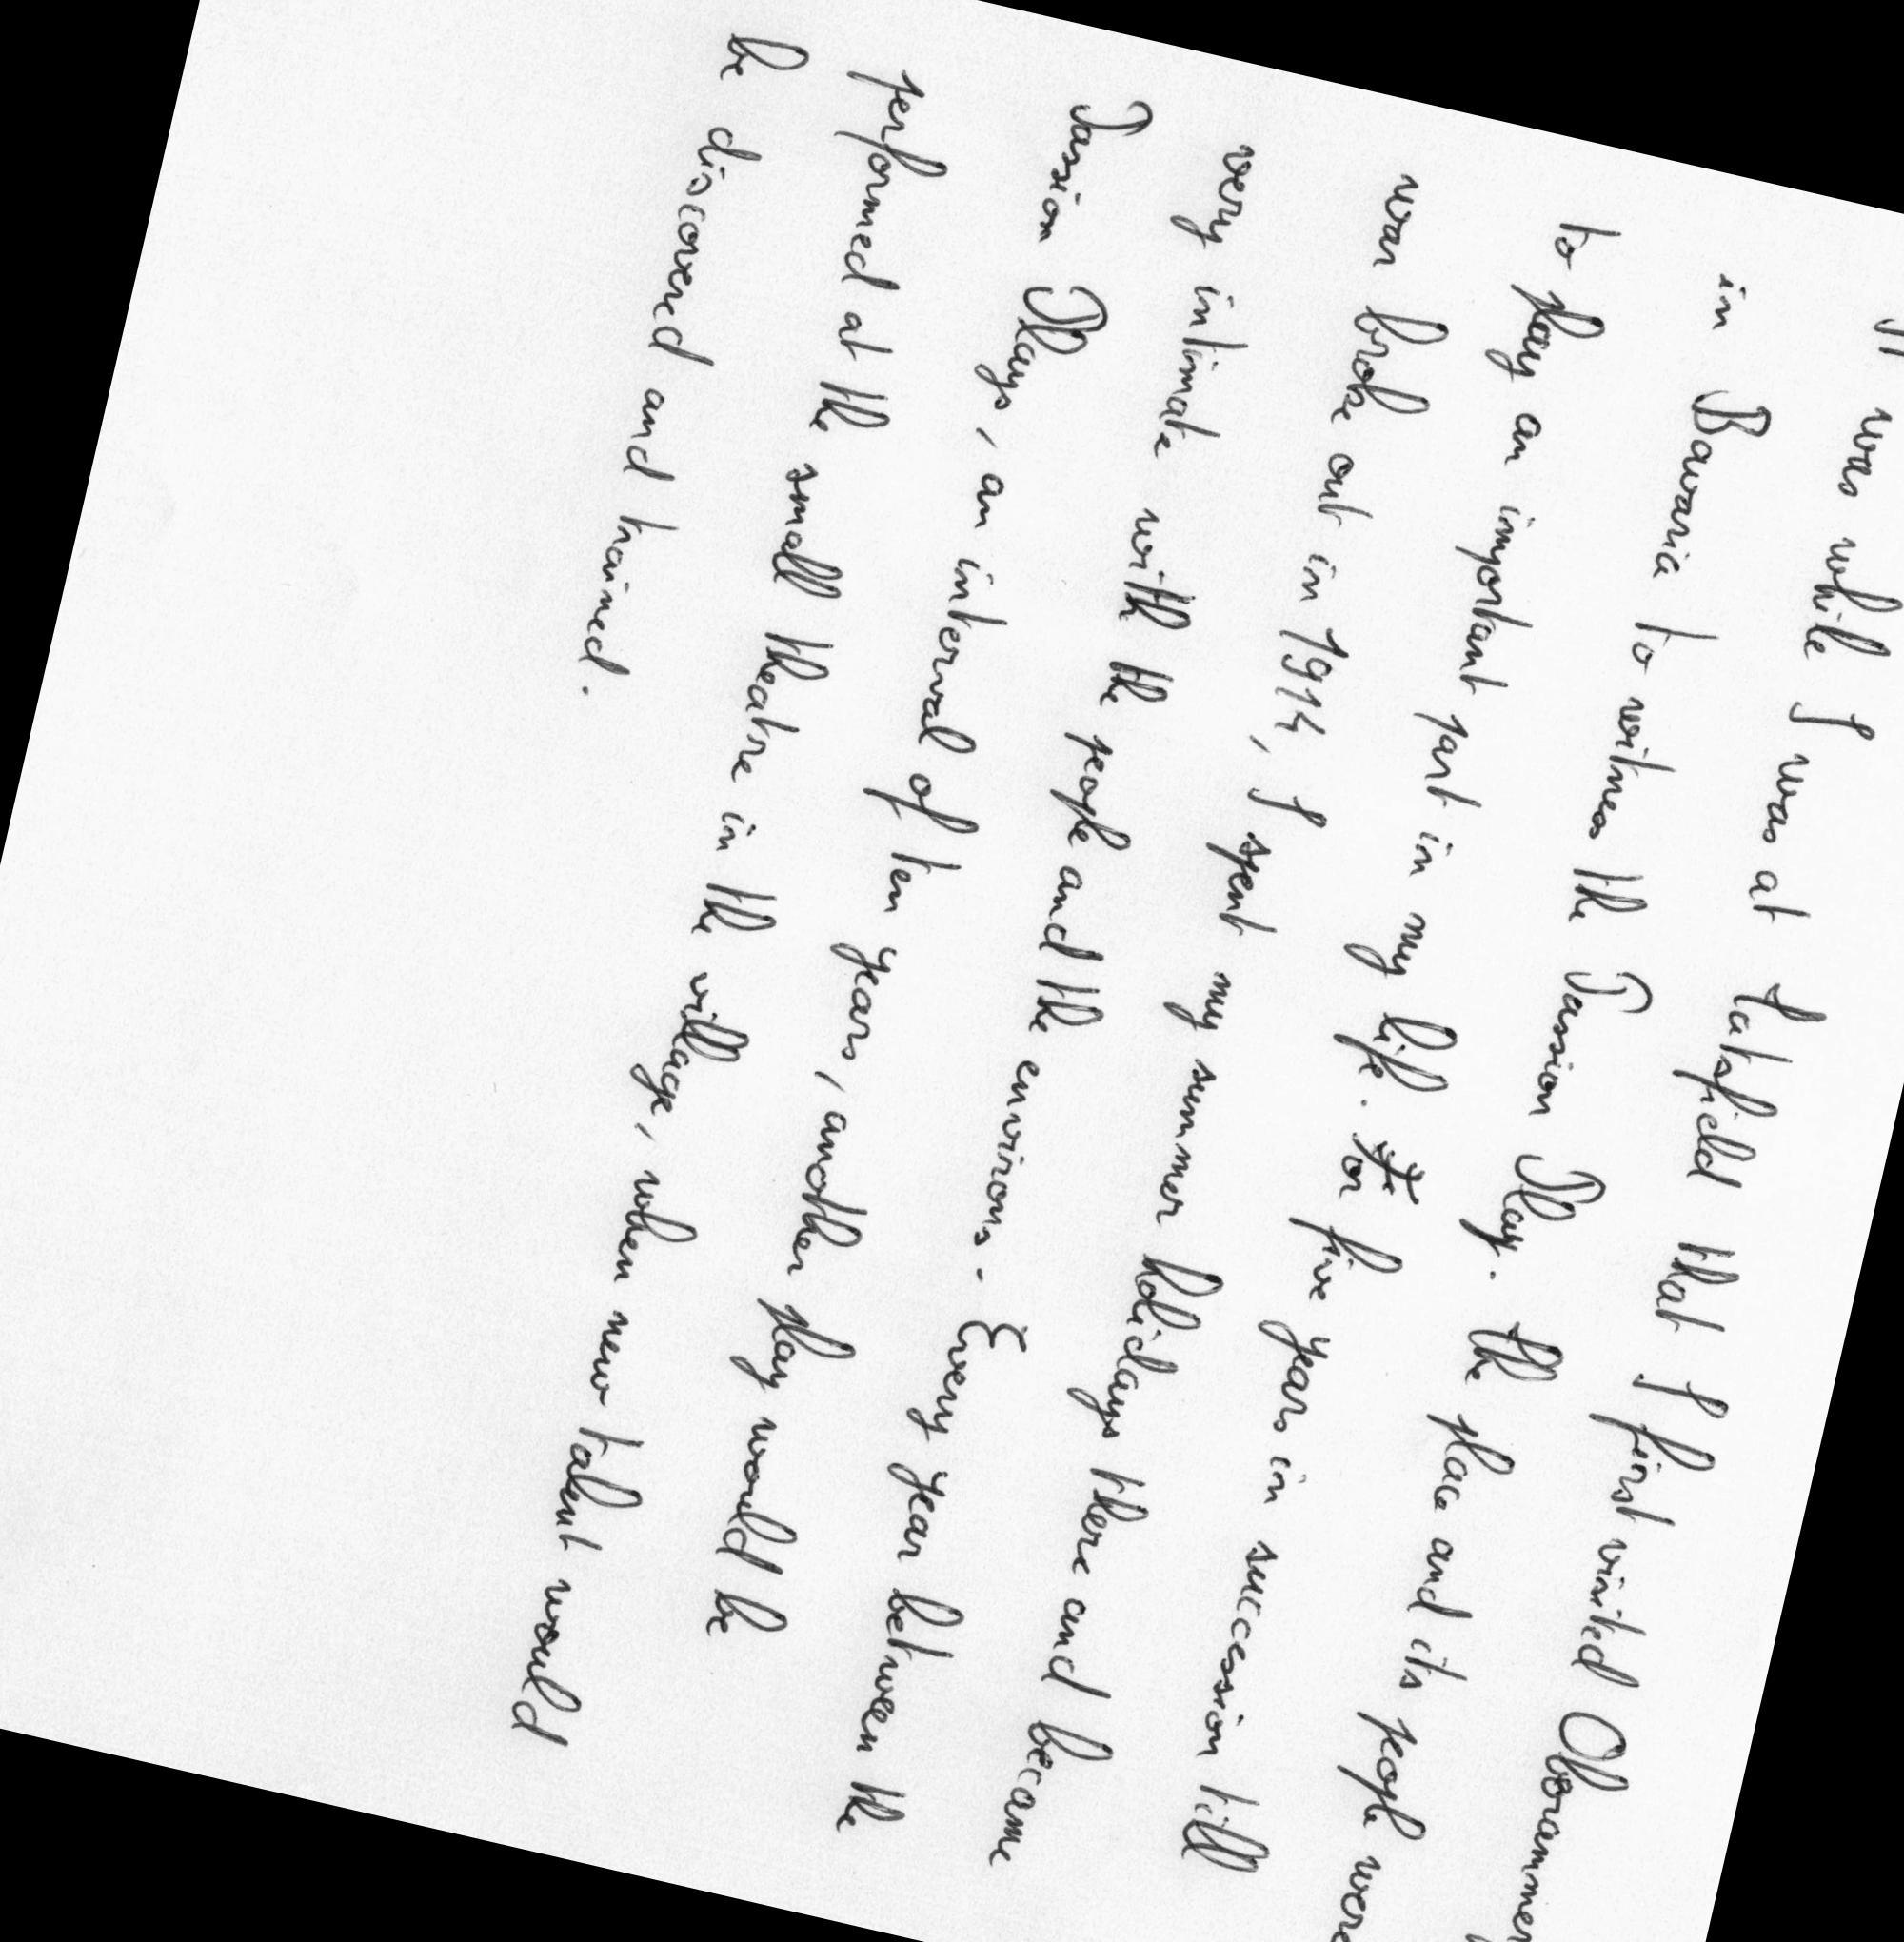 was while I was at Tatsfield that I first visited Oberammer
in Bavaria to witness the Passion Play. The place and its people were
to play an important part in my life. For five years in succession till
war broke out in 1914, I spent my summer holidays there and became
very intimate with the people and the environs. Every year between the
Passion Plays, an interval of ten years, another play would be
performed at the small theatre in the village, when new talent would
be discovered and trained.